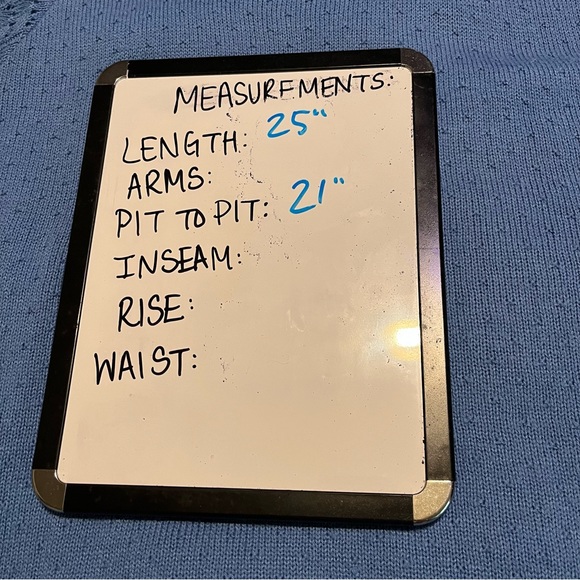 MEASUREMENTS:
LENGTH: 25"
ARMS:
PIT TO PIT: 21"
INSEAM:
RISE:
WAIST: